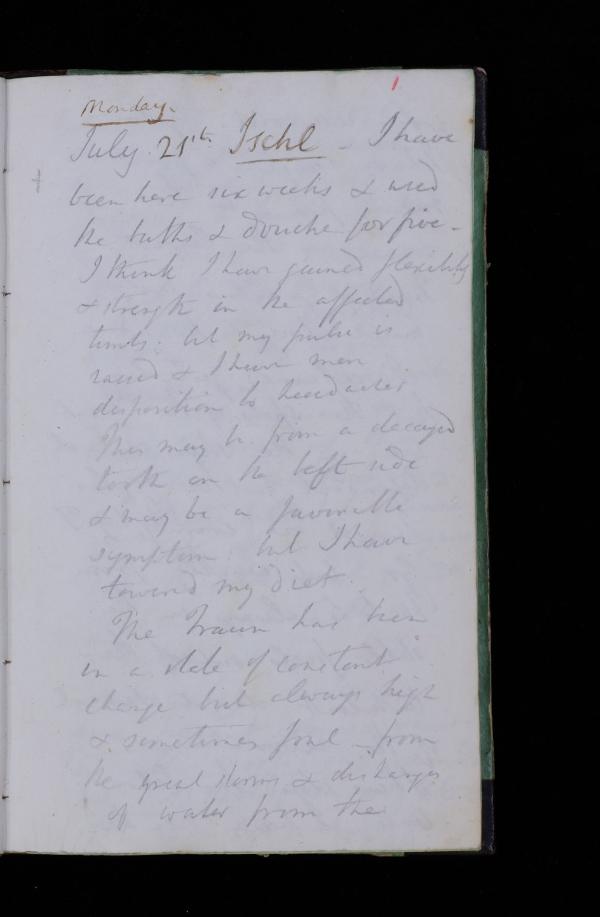 Monday.
July 21st. Ischl - I have
been here six weeks & used
the baths & douche for five -
I think I have gained flexibility
& strength in the affected
limbs: but my pulse is
raised & I have more
disposition to headaches.
This may be from a decayed
tooth on the left side
& may be a favourable
symptom but I have
lowered my diet.
The Traun has been
in a state of constant
change but always high
& sometimes foul - from
the great storms & discharges
of water from the